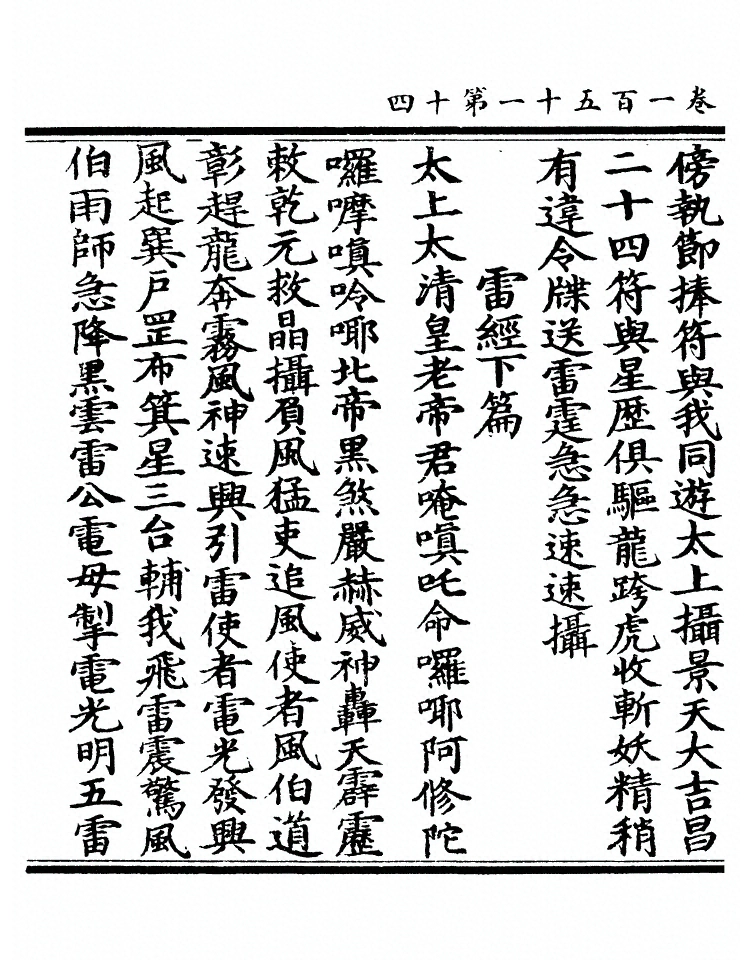 卷一百五十一第十四
傍執節捧符與我同遊太上攝景天大吉昌
二十四符與星歷俱驅龍跨虎收斬妖精稍
有違令牒送雷霆急急速速攝
雷經下篇
太上太清皇老帝君唵嗔吒命囉㖿阿修陀
囉嚤嗔唥㖿北帝黑煞嚴赫威神轟天霹靂
敕乾元救晶攝負風猛吏追風使者風伯道
彰趕龍奔霧風神速興引雷使者電光發興
風起巽戶罡布箕星三台輔我飛雷震驚風
伯雨師急降黑雲雷公電母掣電光明五雷